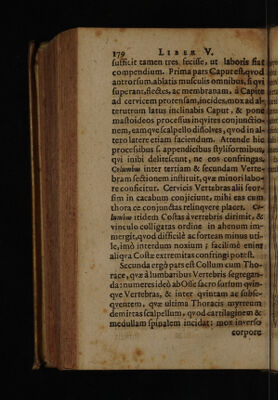 170 LIBER V.
sufficit tamen tres fecisse, ut laboris fiat
compendium. Prima pars Caput est, qvod
antrorsum, ablatis musculis omnibus, si qvi
superant, flectes, ac membranam, â Capite
ad cervicem protensam, incides, mox ad al-
terutrum latus inclinabis Caput, & pone
mastoideos processus inqvires conjunctio-
nem, eamqve scalpello dissolves, qvod in al-
tero latere etiam faciendum. Attende hîc
processibus s. appendicibus styliformibus,
qvi inibi delitescunt, ne eos confringas.
Columbus inter tertiam & secundam Verte-
bram sectionem instituit, qvæ minori labo-
re conficitur. Cervicis Vertebras alii seor-
sim in cacabum conjiciunt, mihi eas cum
thorace conjunctas relinqvere placet. Co-
lumbus itidem Costas â verrebris dirimit, &
vinculo colligatas ordine in ahenum im-
mergit, qvod difficilè ac fortean minus uti-
le, imò interdum noxium; facilimè enim
aliqva Costæ extremitas confringi potest.
Secunda ergò pars est Collum cum Tho-
race, qvæ â lumbaribus Vertebris segregan-
da: numeres ideò ab Osse sacro sursum qvin-
qve Vertebras, & inter qvintam ac subse-
qventem, qvæ ultima Thoracis
demittas scalpellum, qvod cartilaginem &
medullam spinalem incidat: mox inverso
corpore